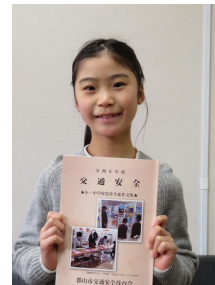 令和６年度
交通安全
★小・中学校児童生徒作文集★
郡山市交通安全母の会